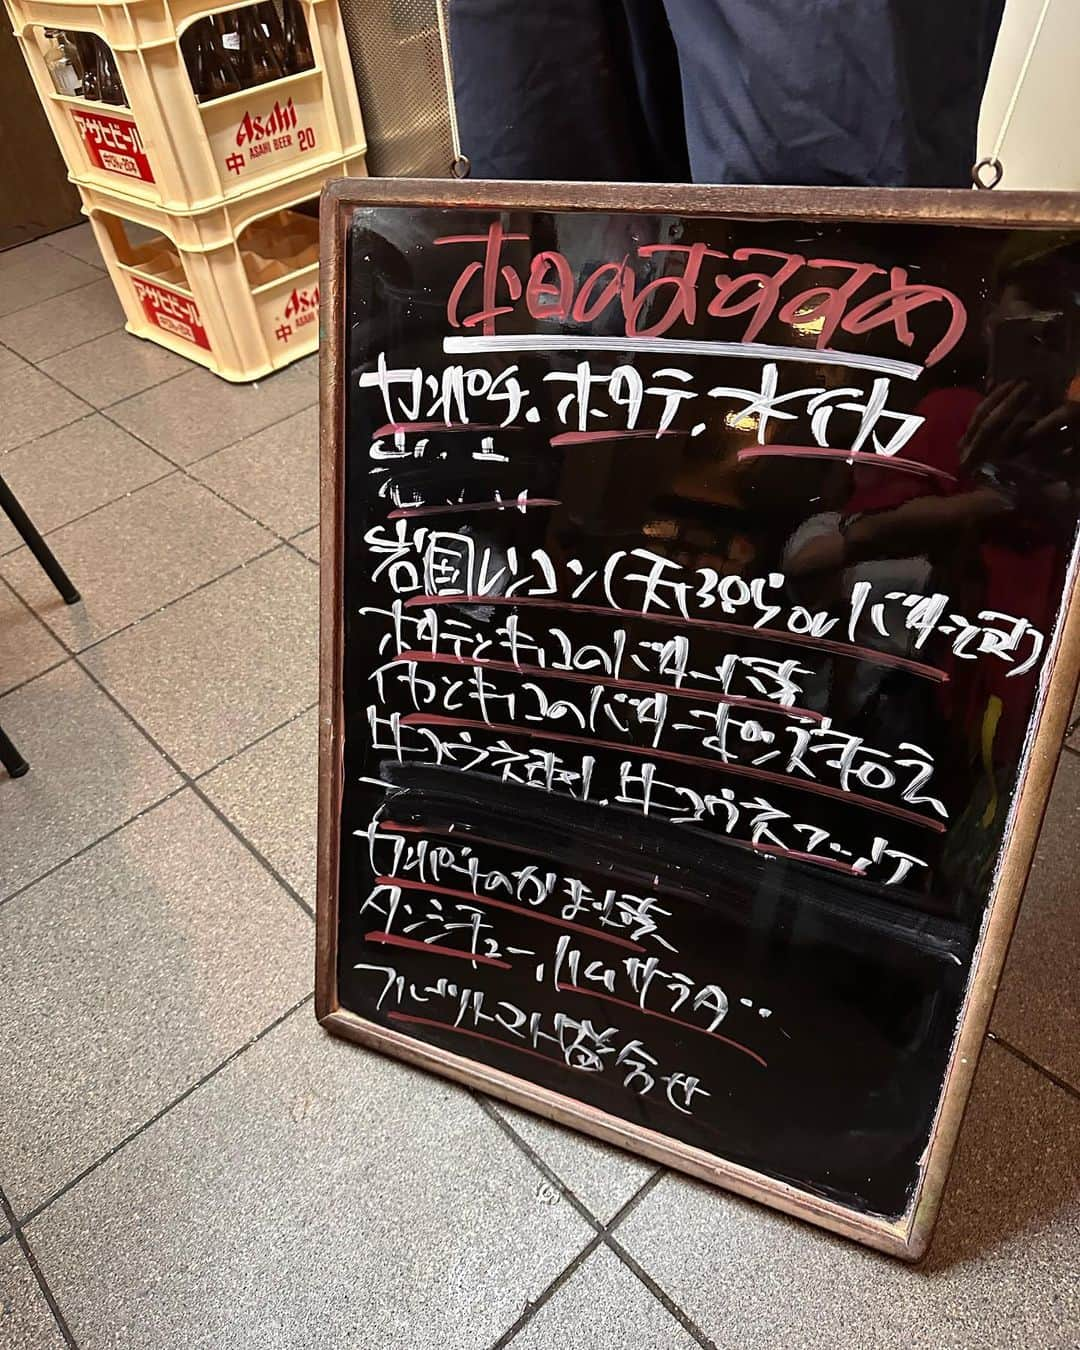 アサヒビール
Asahi
中 ASAHI BEER 20
アサヒビール
中 ASAHI
本日のおすすめ
カンパチ、ホタテ、水イカ
岩国レンコン(天ぷらorバター
ホタテとキノコのバター焼
イカとキノコのバターポン
生コウネ刺、生コウネユッケ
カンパチのかま焼
タンシチュー、ハムサラダ
フルーツトマト盛合せ